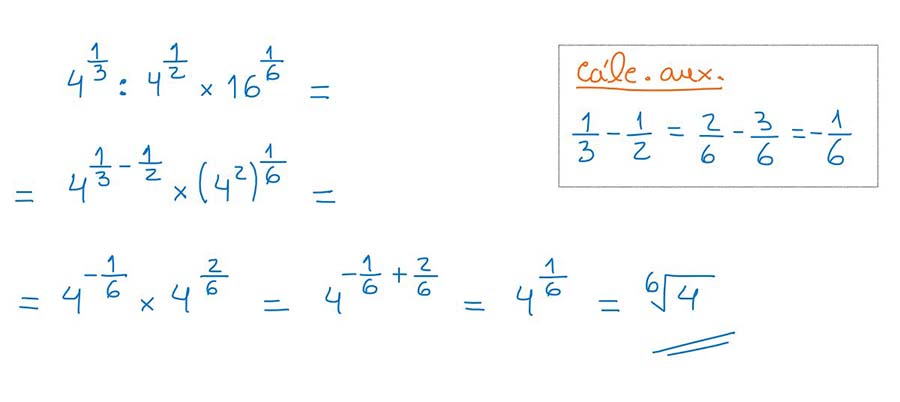 4^{\frac{1}{3}} : 4^{\frac{1}{2}} × 16^{\frac{1}{6}} =
= 4^{\frac{1}{3} - \frac{1}{2}} × (4^2)^{\frac{1}{6}} =
= 4^{-\frac{1}{6}} × 4^{\frac{2}{6}} = 4^{-\frac{1}{6} + \frac{2}{6}} = 4^{\frac{1}{6}} = \sqrt[6]{4}
cálc. aux.
\frac{1}{3} - \frac{1}{2} = \frac{2}{6} - \frac{3}{6} = -\frac{1}{6}